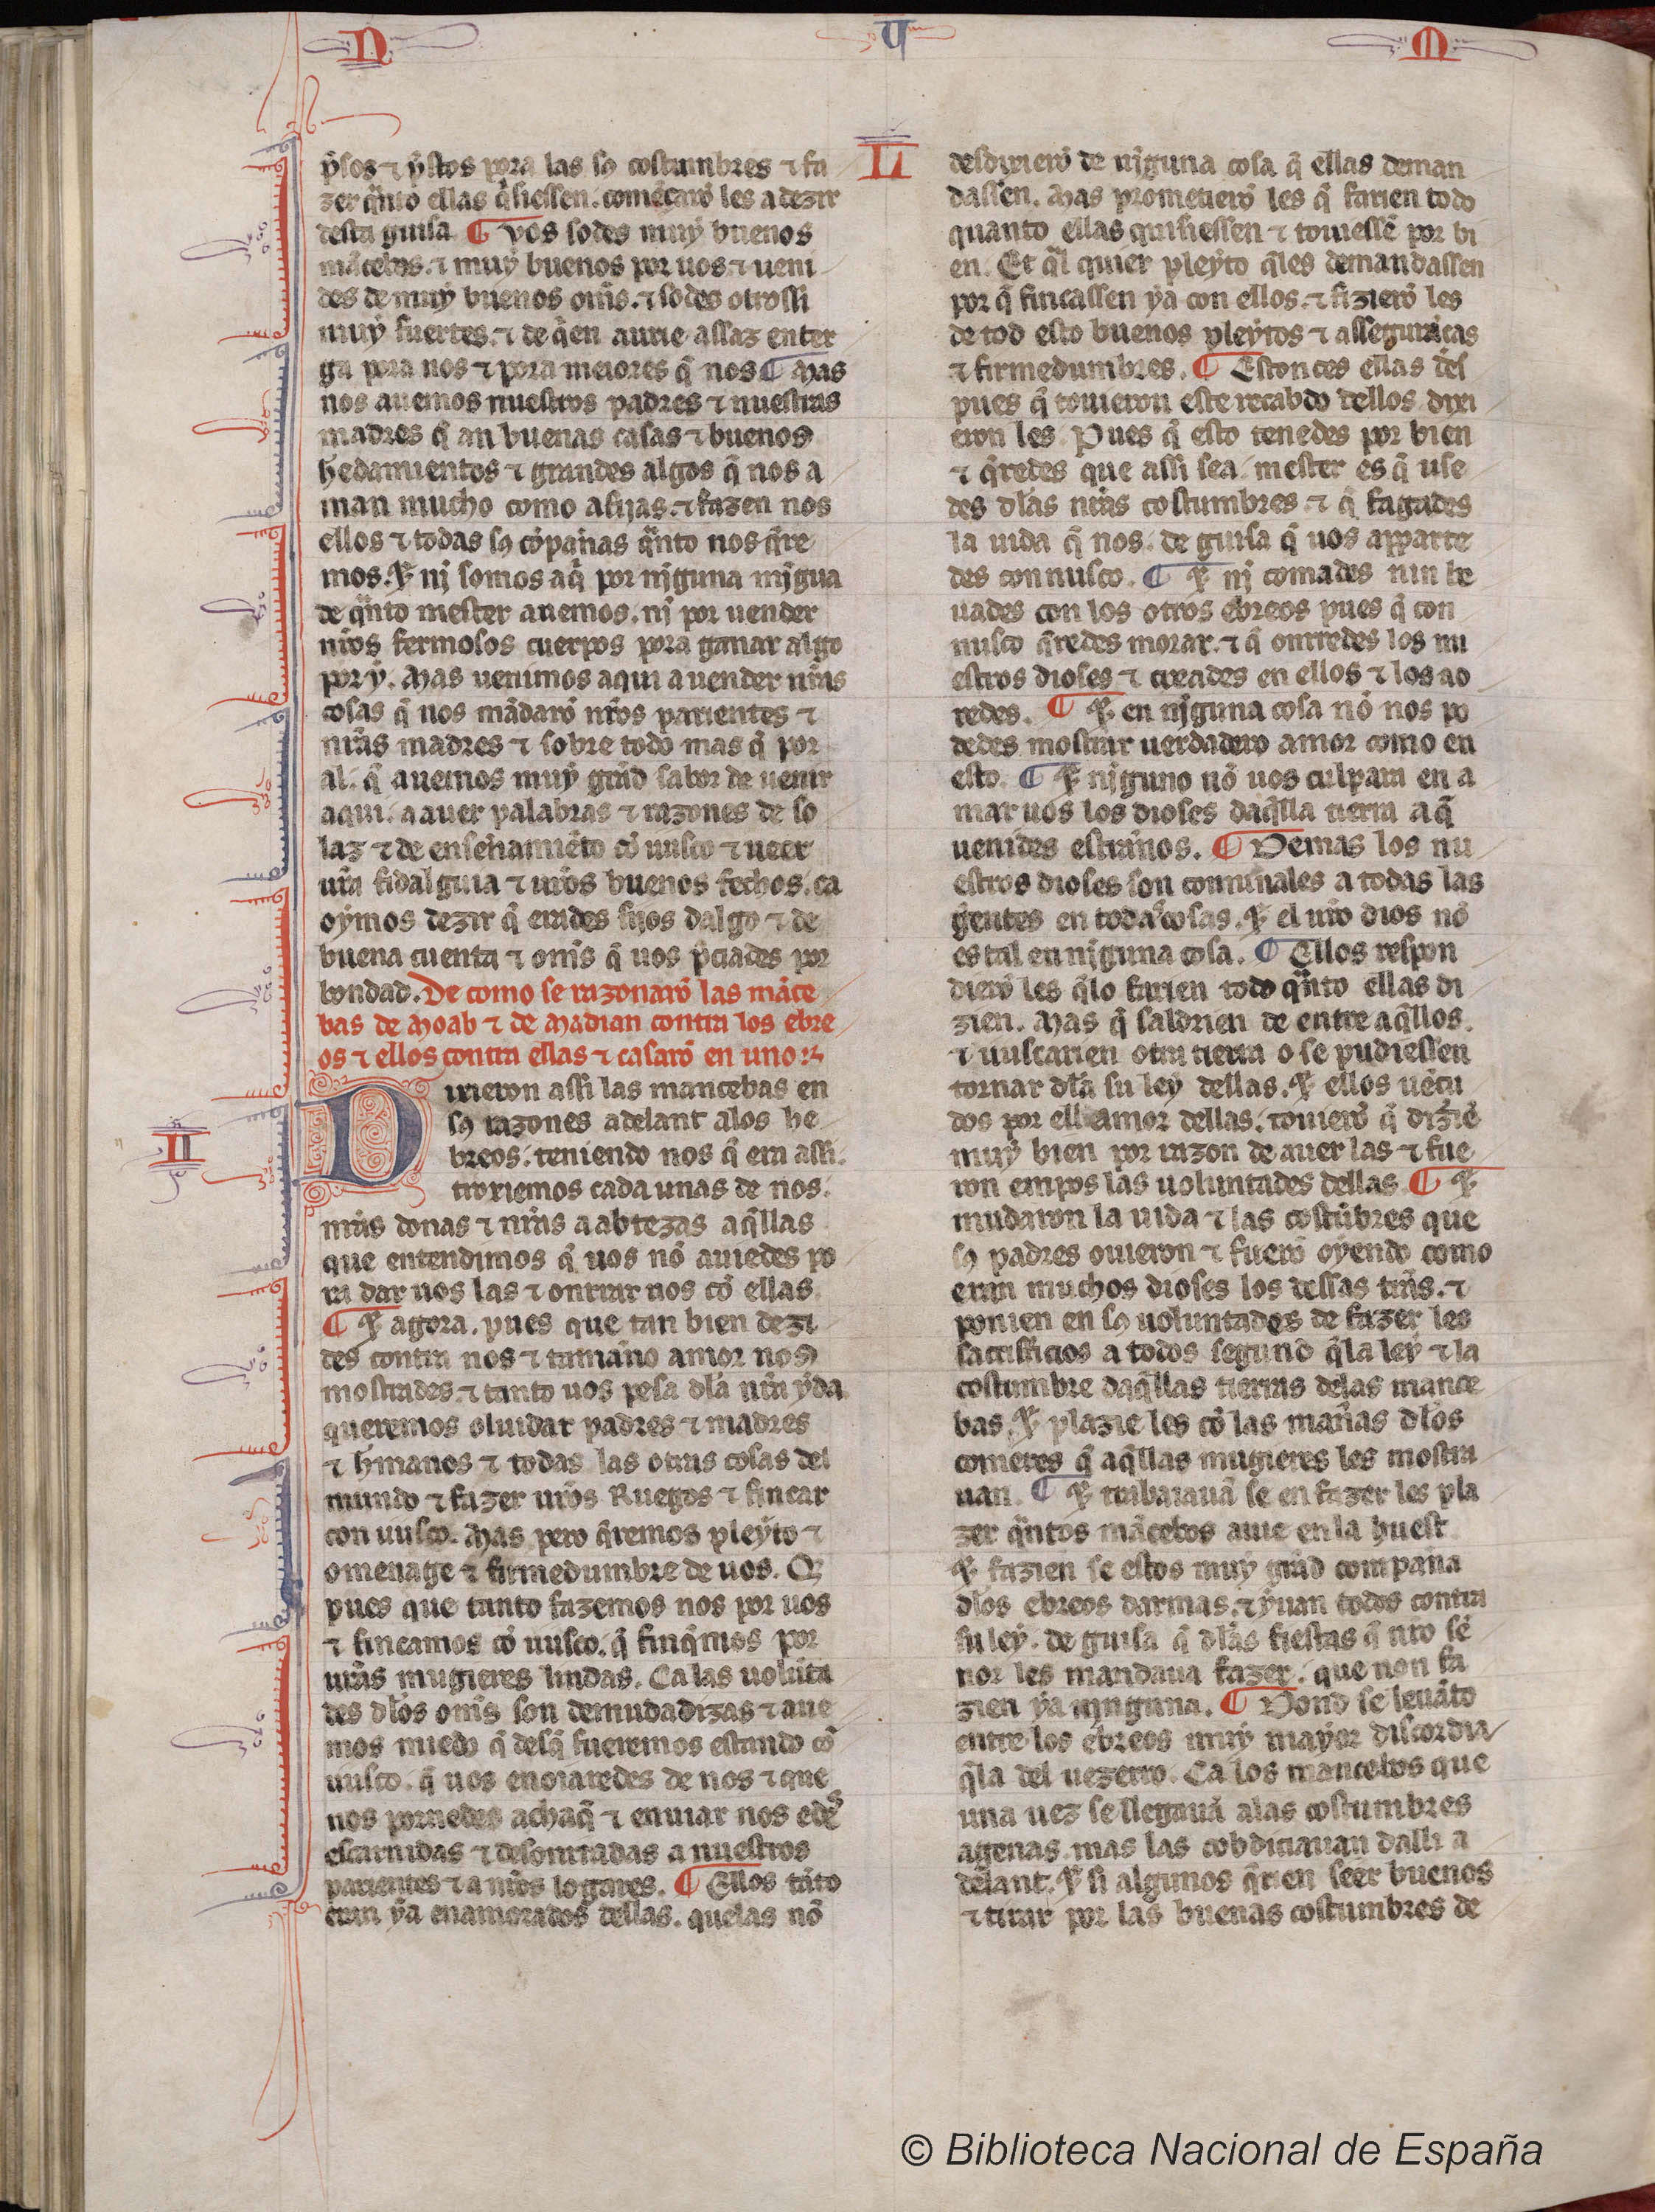 N U M
p̃sos ⁊ p̃stos pora las sꝯ costumbres ⁊ fa
zer q̃nto ellas q̃siessen. comẽçarõ les a dezir
desta guisa. ¶ vos sodes muy buenos
mãcebos. ⁊ muy buenos por uos. ⁊ ueni
des de muy buenos om̃s. ⁊ sodes otrossi
muy fuertes. ⁊ de q̃en aurie assaz enter
ga pora nos ⁊ pora meiores q̃ nos ¶ Mas
nos auemos nuestros padres ⁊ nuestras
madres q̃ an buenas casas ⁊ buenos
hedamientos ⁊ grandes algos q̃ nos a
man mucho como afijas. ⁊ fazen nos
ellos ⁊ todas sꝯ cõpañas q̃nto nos q̃re
mos. ⁊ nj somos aq̃ por njguna mjgua
de q̃nto mester auemos. nj por uender
nr̃os fermosos cuerpos pora ganar algo
por y. Mas uenimos aqui a uender nr̃as
cosas q̃ nos mãdarõ nr̃os parientes ⁊
nr̃as madres ⁊ sobre todo mas q̃ por
al. q̃ auemos muy grãd sabor de uenir
aqui. a auer palabras ⁊ razones de so
laz ⁊ de enseñamiẽto cõ uusco ⁊ ueer
ur̃a fidalguia ⁊ ur̃os buenos fechos. ca
oymos dezir q̃ erades fijos dalgo ⁊ de
buena cuenta ⁊ om̃s q̃ uos p̃ciades por
bondad. De como se razonarõ las mãce
bas de Moab ⁊ de Madian contra los ebre
os ⁊ ellos contra ellas ⁊ casarõ en uno
II
Dixieron assi las mancebas en
sꝯ razones adelant alos he
breos. teniendo nos q̃ era assi.
troxiemos cada unas de nos.
nr̃as donas ⁊ nr̃as aabtezas aq̃llas
que entendimos q̃ uos nõ auiedes po
ra dar uos las ⁊ onrrar nos cõ ellas.
¶ ⁊ agora. pues que tan bien dezi
des contra nos ⁊ tamaño amor nos
mostrades. ⁊ tanto uos pesa dl̃a nr̃a yda
queremos oluidar padres ⁊ madres
⁊ hr̃manos ⁊ todas las otras cosas del
mundo ⁊ fazer ur̃os Ruegos ⁊ fincar
con uusco. Mas pero q̃remos pleyto ⁊
omenage ⁊ firmedumbre de uos. Q̃
pues que tanto fazemos nos por uos
⁊ fincamos cõ uusco. q̃ finq̃mos por
ur̃as mugieres lindas. Ca las uolũta
des dl̃os om̃s son demudadizas ⁊ aue
mos miedo q̃ desq̃ fueremos estando cõ
uusco. q̃ uos enoiaredes de nos ⁊ que
nos pornedes achaq̃ ⁊ enuiar nos edes
escarnidas ⁊ desonrradas a nuestros
parientes ⁊ a nr̃os logares. ¶ Ellos tãto
eran ya enamorados dellas. quelas nõ
LI
desdixierõ de njguna cosa q̃ ellas deman
dassen. Mas prometierõ les q̃ farien todo
quanto ellas quisiessen ⁊ touiessẽ por bi
en. Et q̃l quier pleyto q̃les demandassen
por q̃ fincassen ya con ellos. ⁊ fizierõ les
de tod esto buenos pleytos ⁊ assegurãças
⁊ firmedumbres. ¶ Estonces ellas des
pues q̃ touieron este recabdo dellos dixi
eron les. Pues q̃ esto tenedes por bien
⁊ q̃redes que assi sea. mester es q̃ use
des dl̃as nr̃as costumbres. ⁊ q̃ fagades
la uida q̃ nos. de guisa q̃ uos apparte
des connusco. ¶ ⁊ nj comades nin be
uades con los otros ebreos pues q̃ con
nusco q̃redes morar. ⁊ q̃ onrredes los nu
estros dioses ⁊ creades en ellos ⁊ los ao
redes. ¶ ⁊ en njguna cosa nõ nos po
dedes mostrar uerdadero amor como en
esto. ¶ ⁊ njguno nõ uos culpara en a
mar uos los dioses daq̃lla tierra a q̃
uenides estraños. ¶ Demas los nu
estros dioses son comunales a todas las
gentes en todas cosas. ⁊ el ur̃o dios nõ
es tal en njguna cosa. ¶ Ellos respon
dierõ les q̃lo farien todo q̃nto ellas di
zien. Mas q̃ saldrien de entre aq̃llos.
⁊ buscarien otra tierra o se pudiessen
tornar dl̃a su ley dellas. ⁊ ellos uẽcu
dos por ell amor dellas. touierõ q̃ diziẽ
muy bien por razon de auer las ⁊ fue
ron empos las uoluntades dellas ¶ ⁊
mudaron la uida ⁊ las costũbres que
sꝯ padres ouieron ⁊ fuerõ oyendo como
eran muchos dioses los dessas tr̃as. ⁊
ponien en sꝯ uoluntades de fazer les
sacrificios a todos segund q̃la ley ⁊ la
costumbre daq̃llas tierras delas mance
bas. ⁊ plazie les cõ las mañas dl̃os
comeres q̃ aq̃llas mugieres les mostra
uan. ¶ ⁊ trabaiauã se en fazer les pla
zer q̃ntos mãcebos auie en la huest
⁊ fazien se estos muy grãd compaña
dl̃os ebreos darmas. ⁊ yuan todos contra
su ley. de guisa q̃ dl̃as fiestas q̃ nr̃o sẽ
nor les mandaua fazer. que non fa
zien ya njnguna. ¶ Dond se leuãto
entre los ebreos muy mayor discordia
q̃la del uezerro. Ca los mancebos que
una uez se llegauã alas costumbres
agenas. mas las cobdiciauan dalli a
delant. ⁊ si algunos q̃rien seer buenos
⁊ tirar por las buenas costumbres de
© Biblioteca Nacional de España